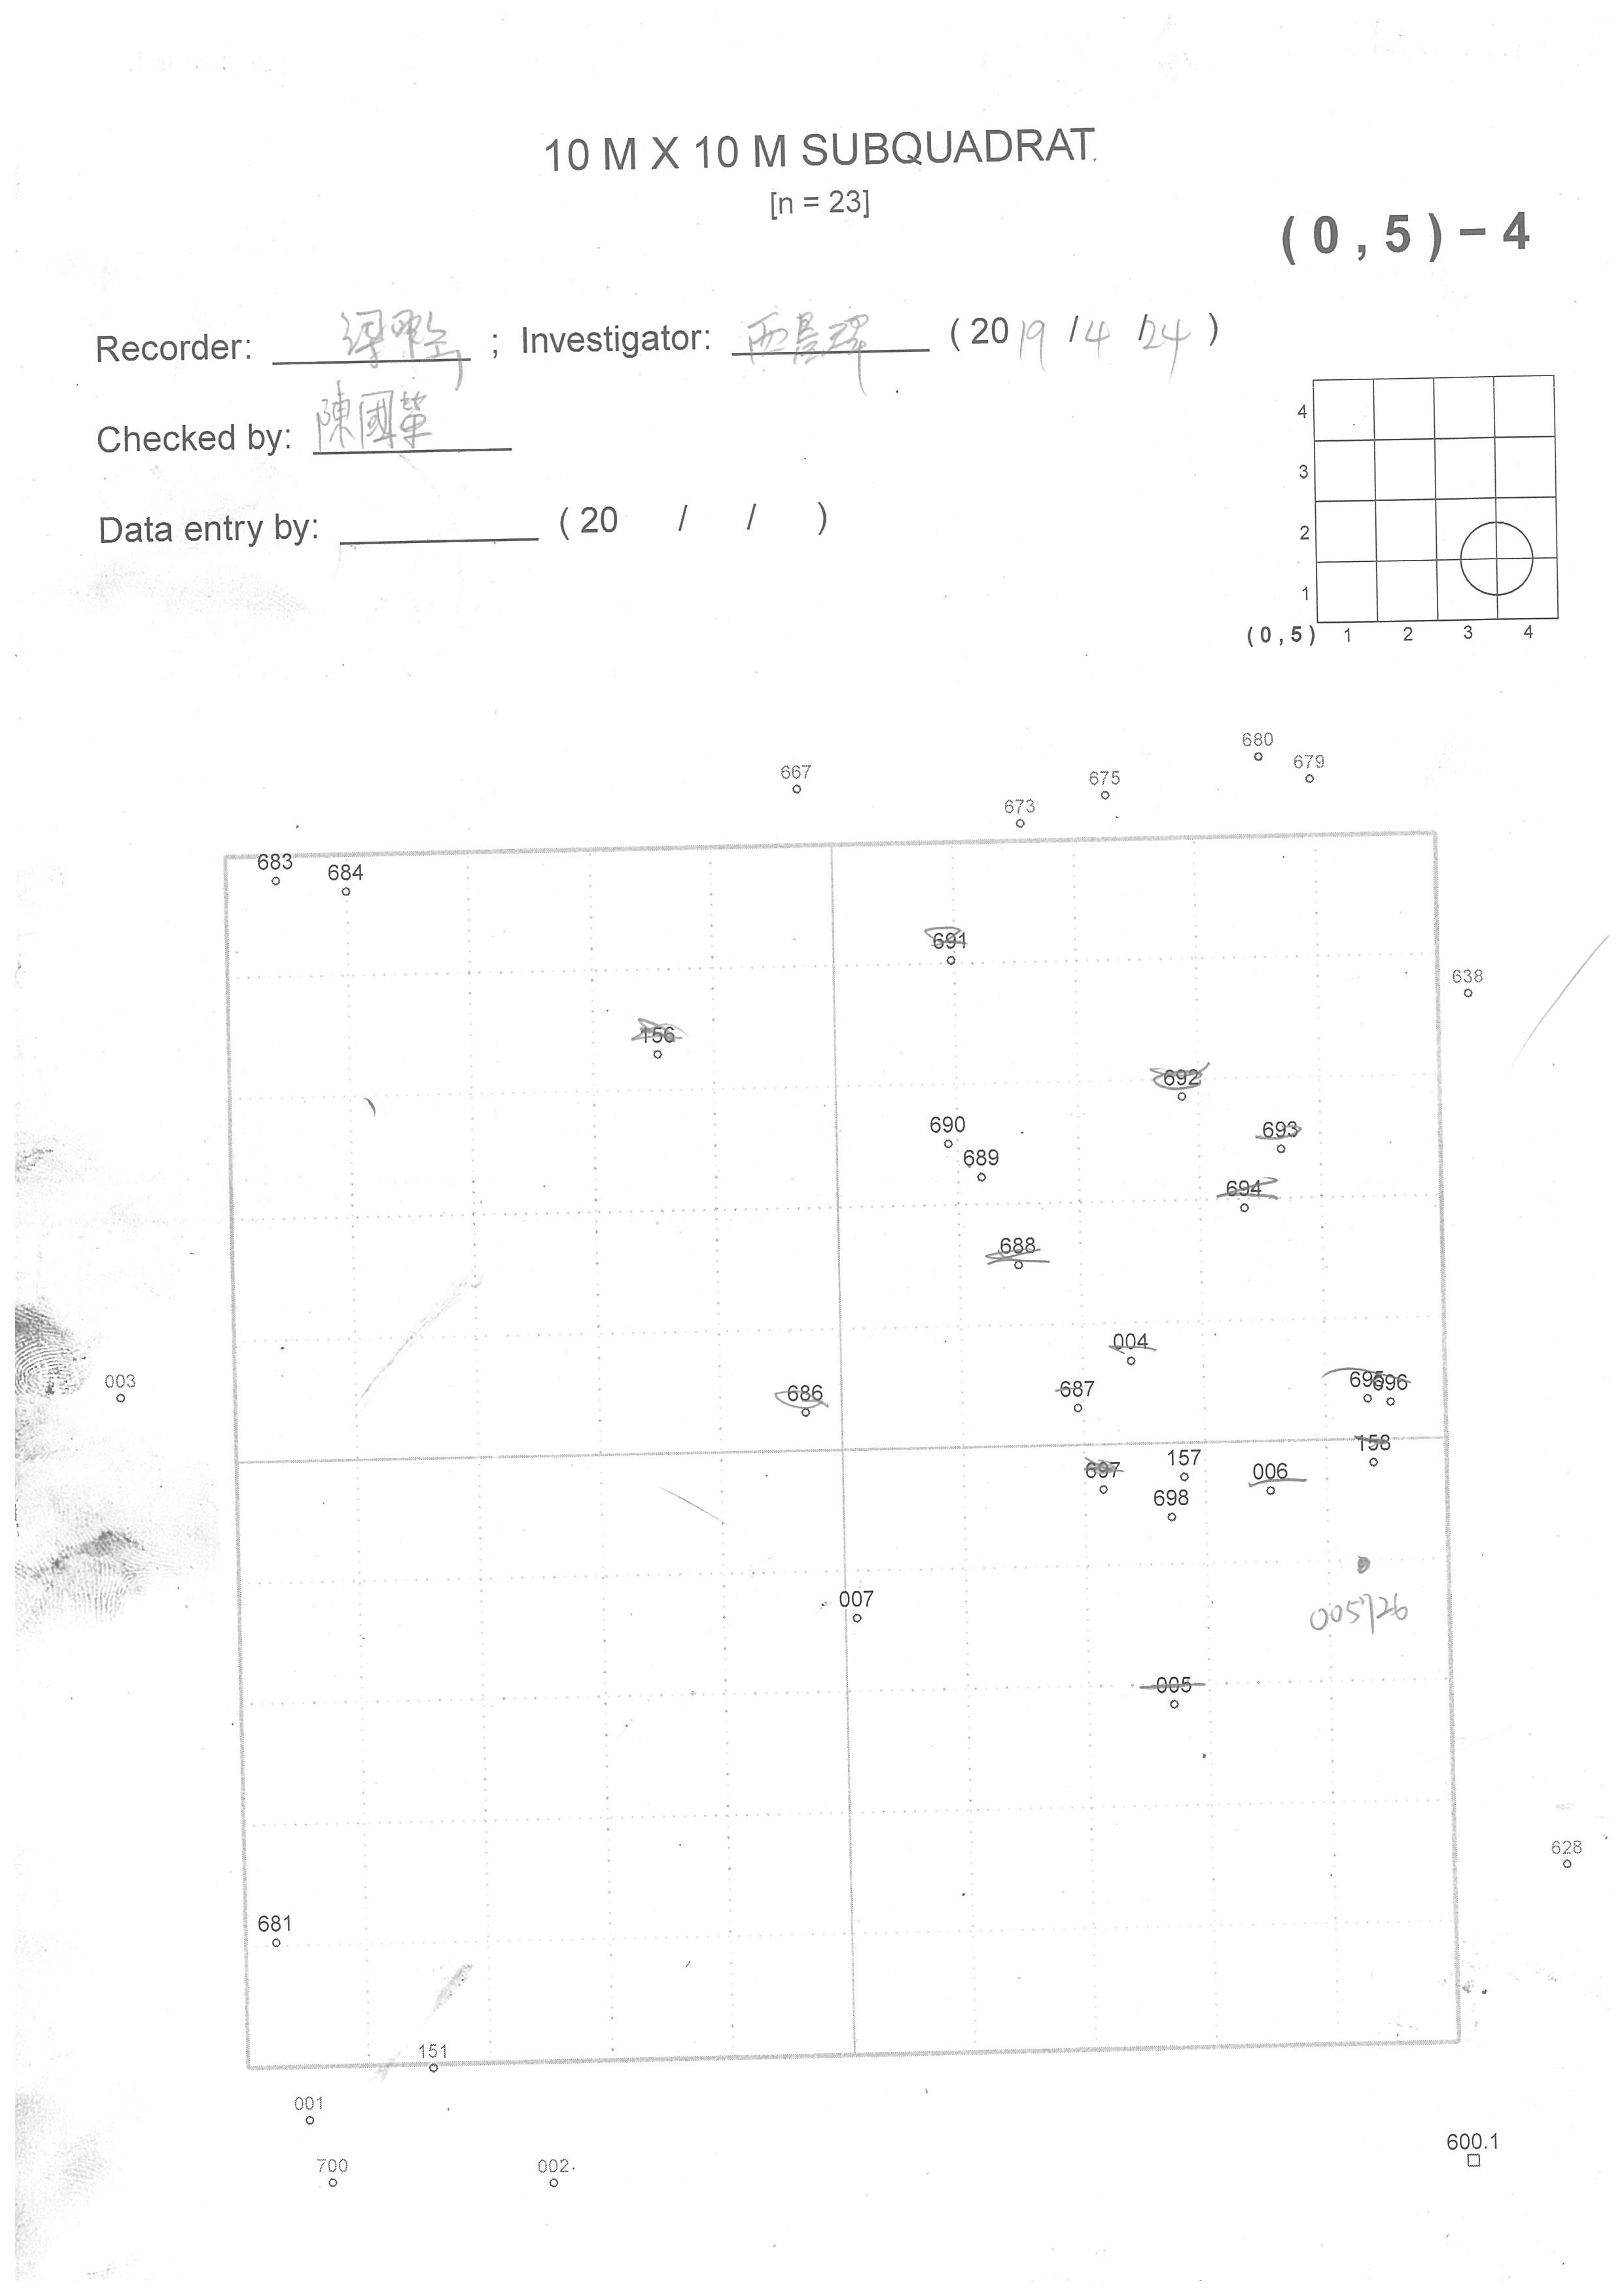 10 M X 10 M SUBQUADRAT
[n = 23]
(0,5)-4
Recorder: ; Investigator: (2019/4/24)
Checked by: 陳國華
Data entry by: (20 / / )
4
3
2
1
(0,5) 1 2 3 4
680
679
667
675
673
683
684
691
638
156
692
690
693
689
694
688
004
003
686
687
695
696
158
157
697
006
698
007
005726
005
628
681
151
001
600.1
700
002